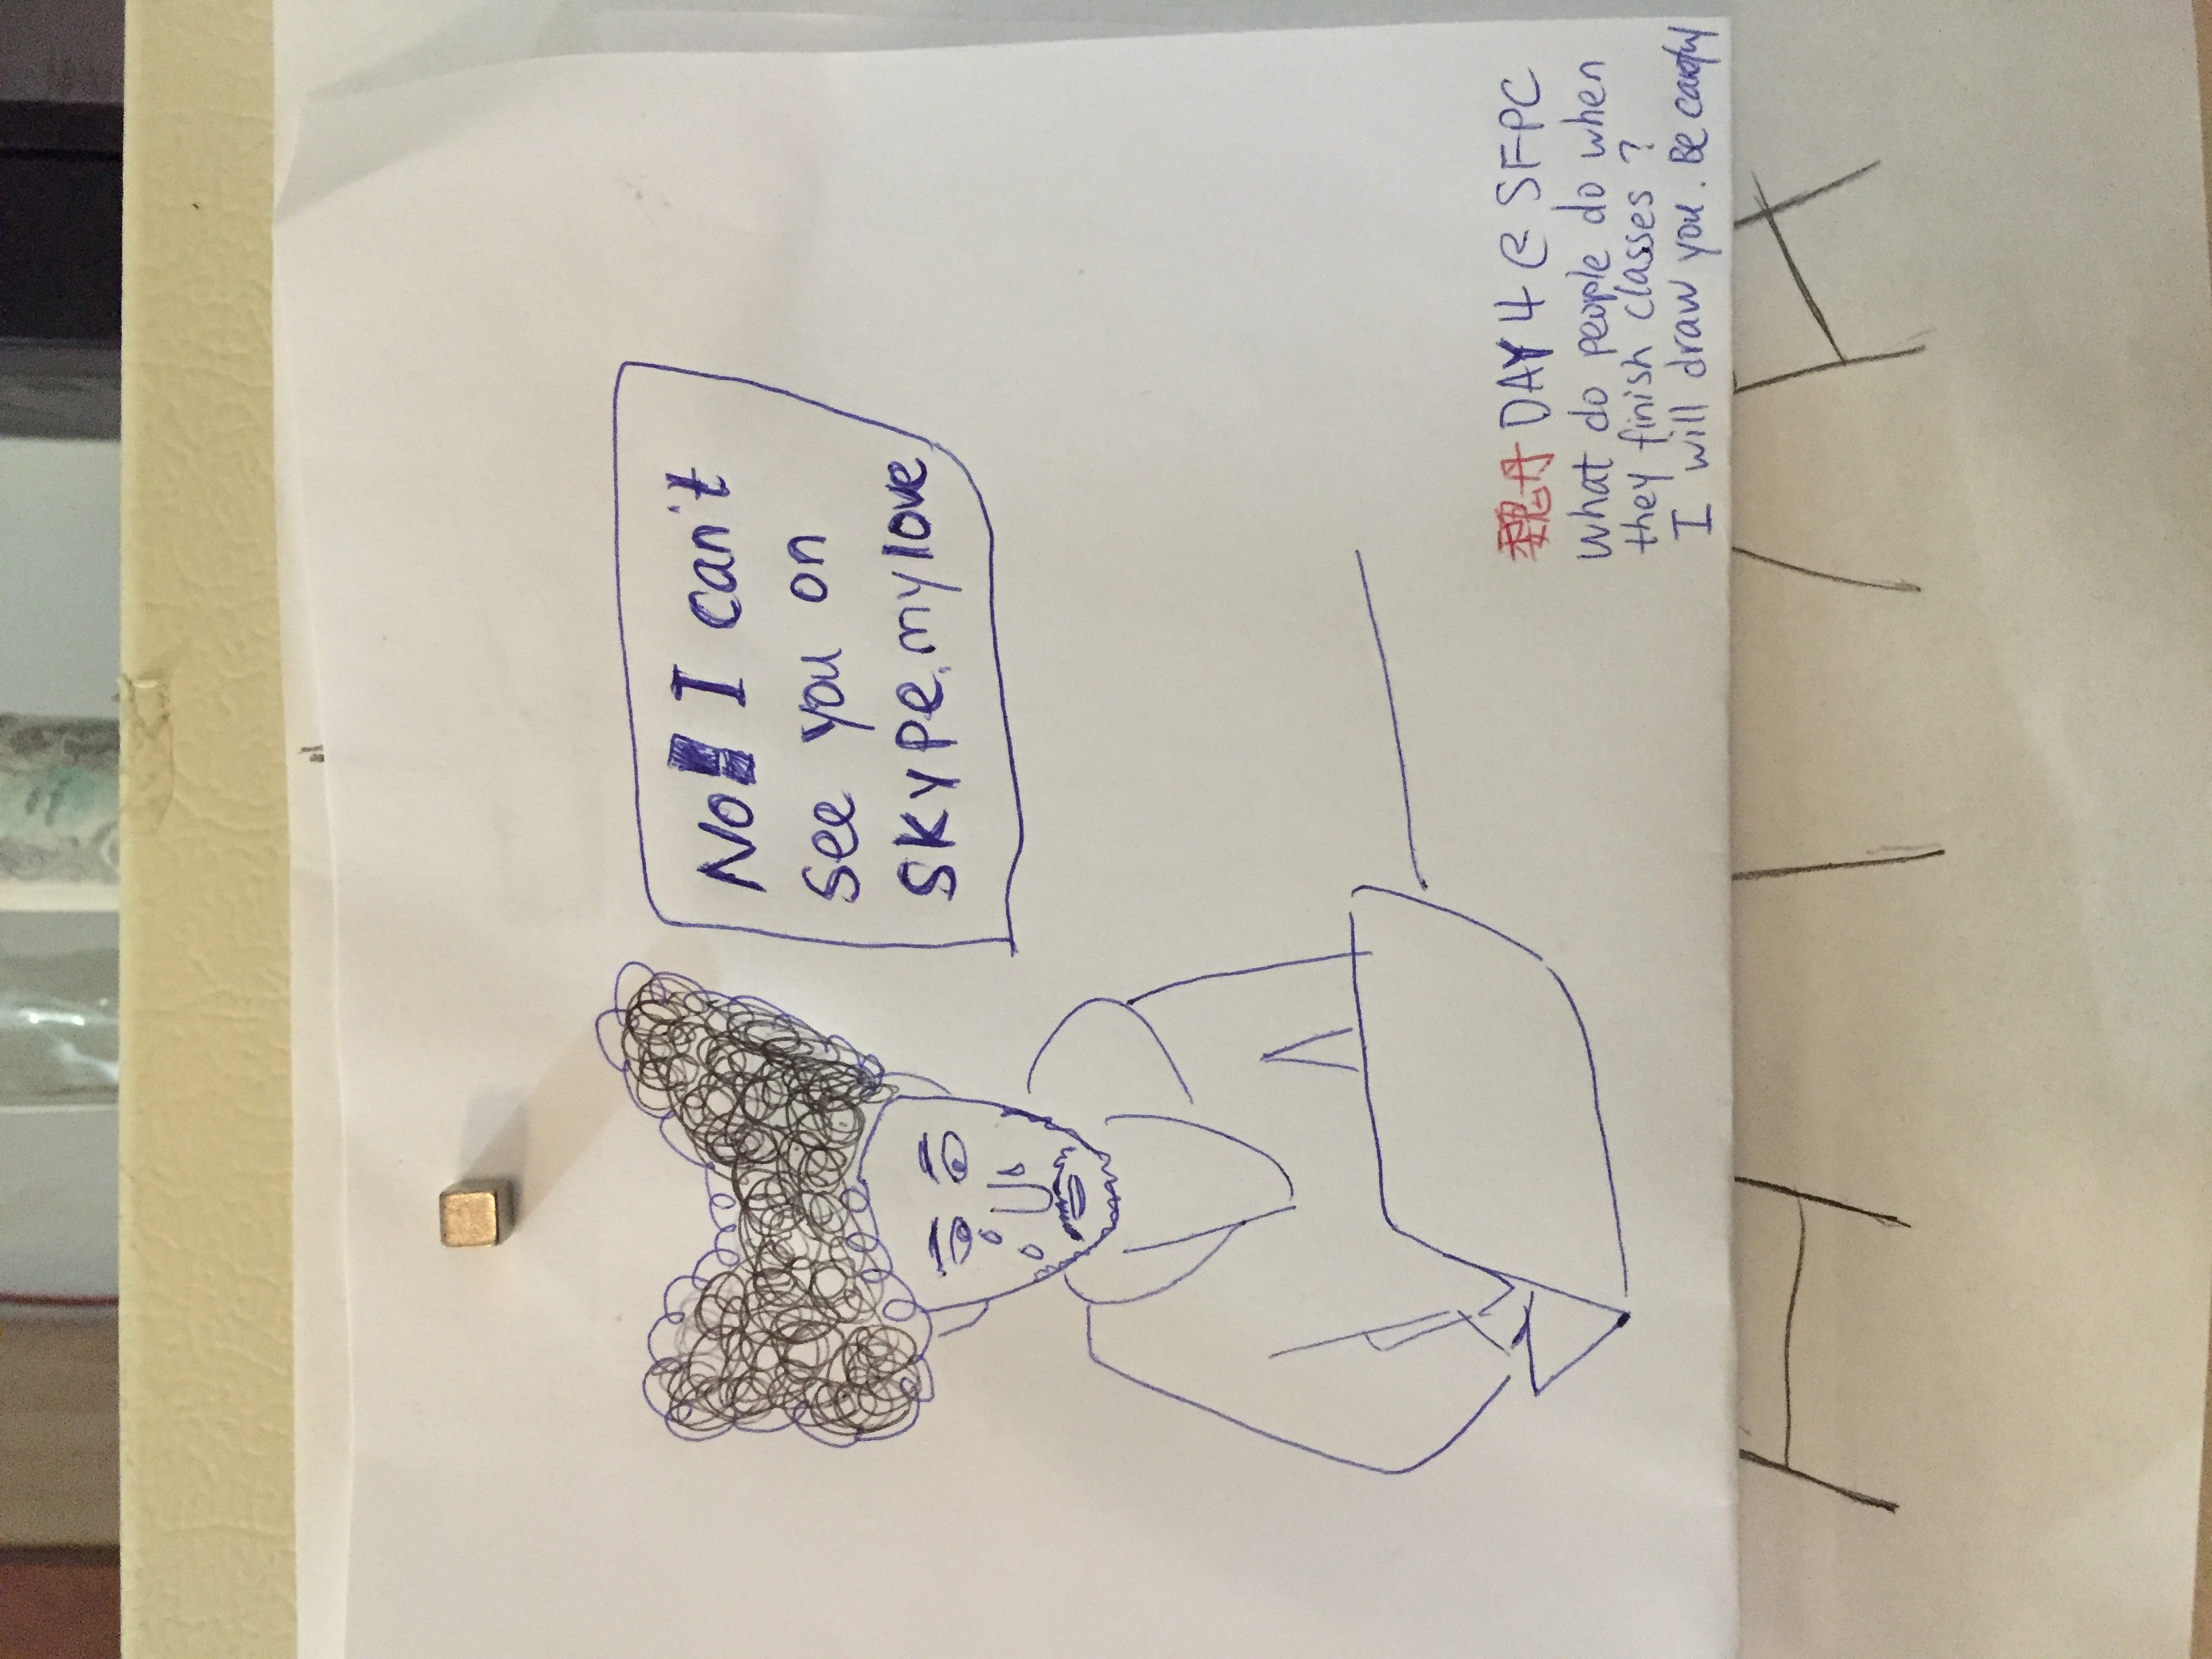 No! I can't
see you on
SKYPE, my love
魏丹 DAY 4 @ SFPC
What do people do when
they finish classes ?
I will draw you. Be careful